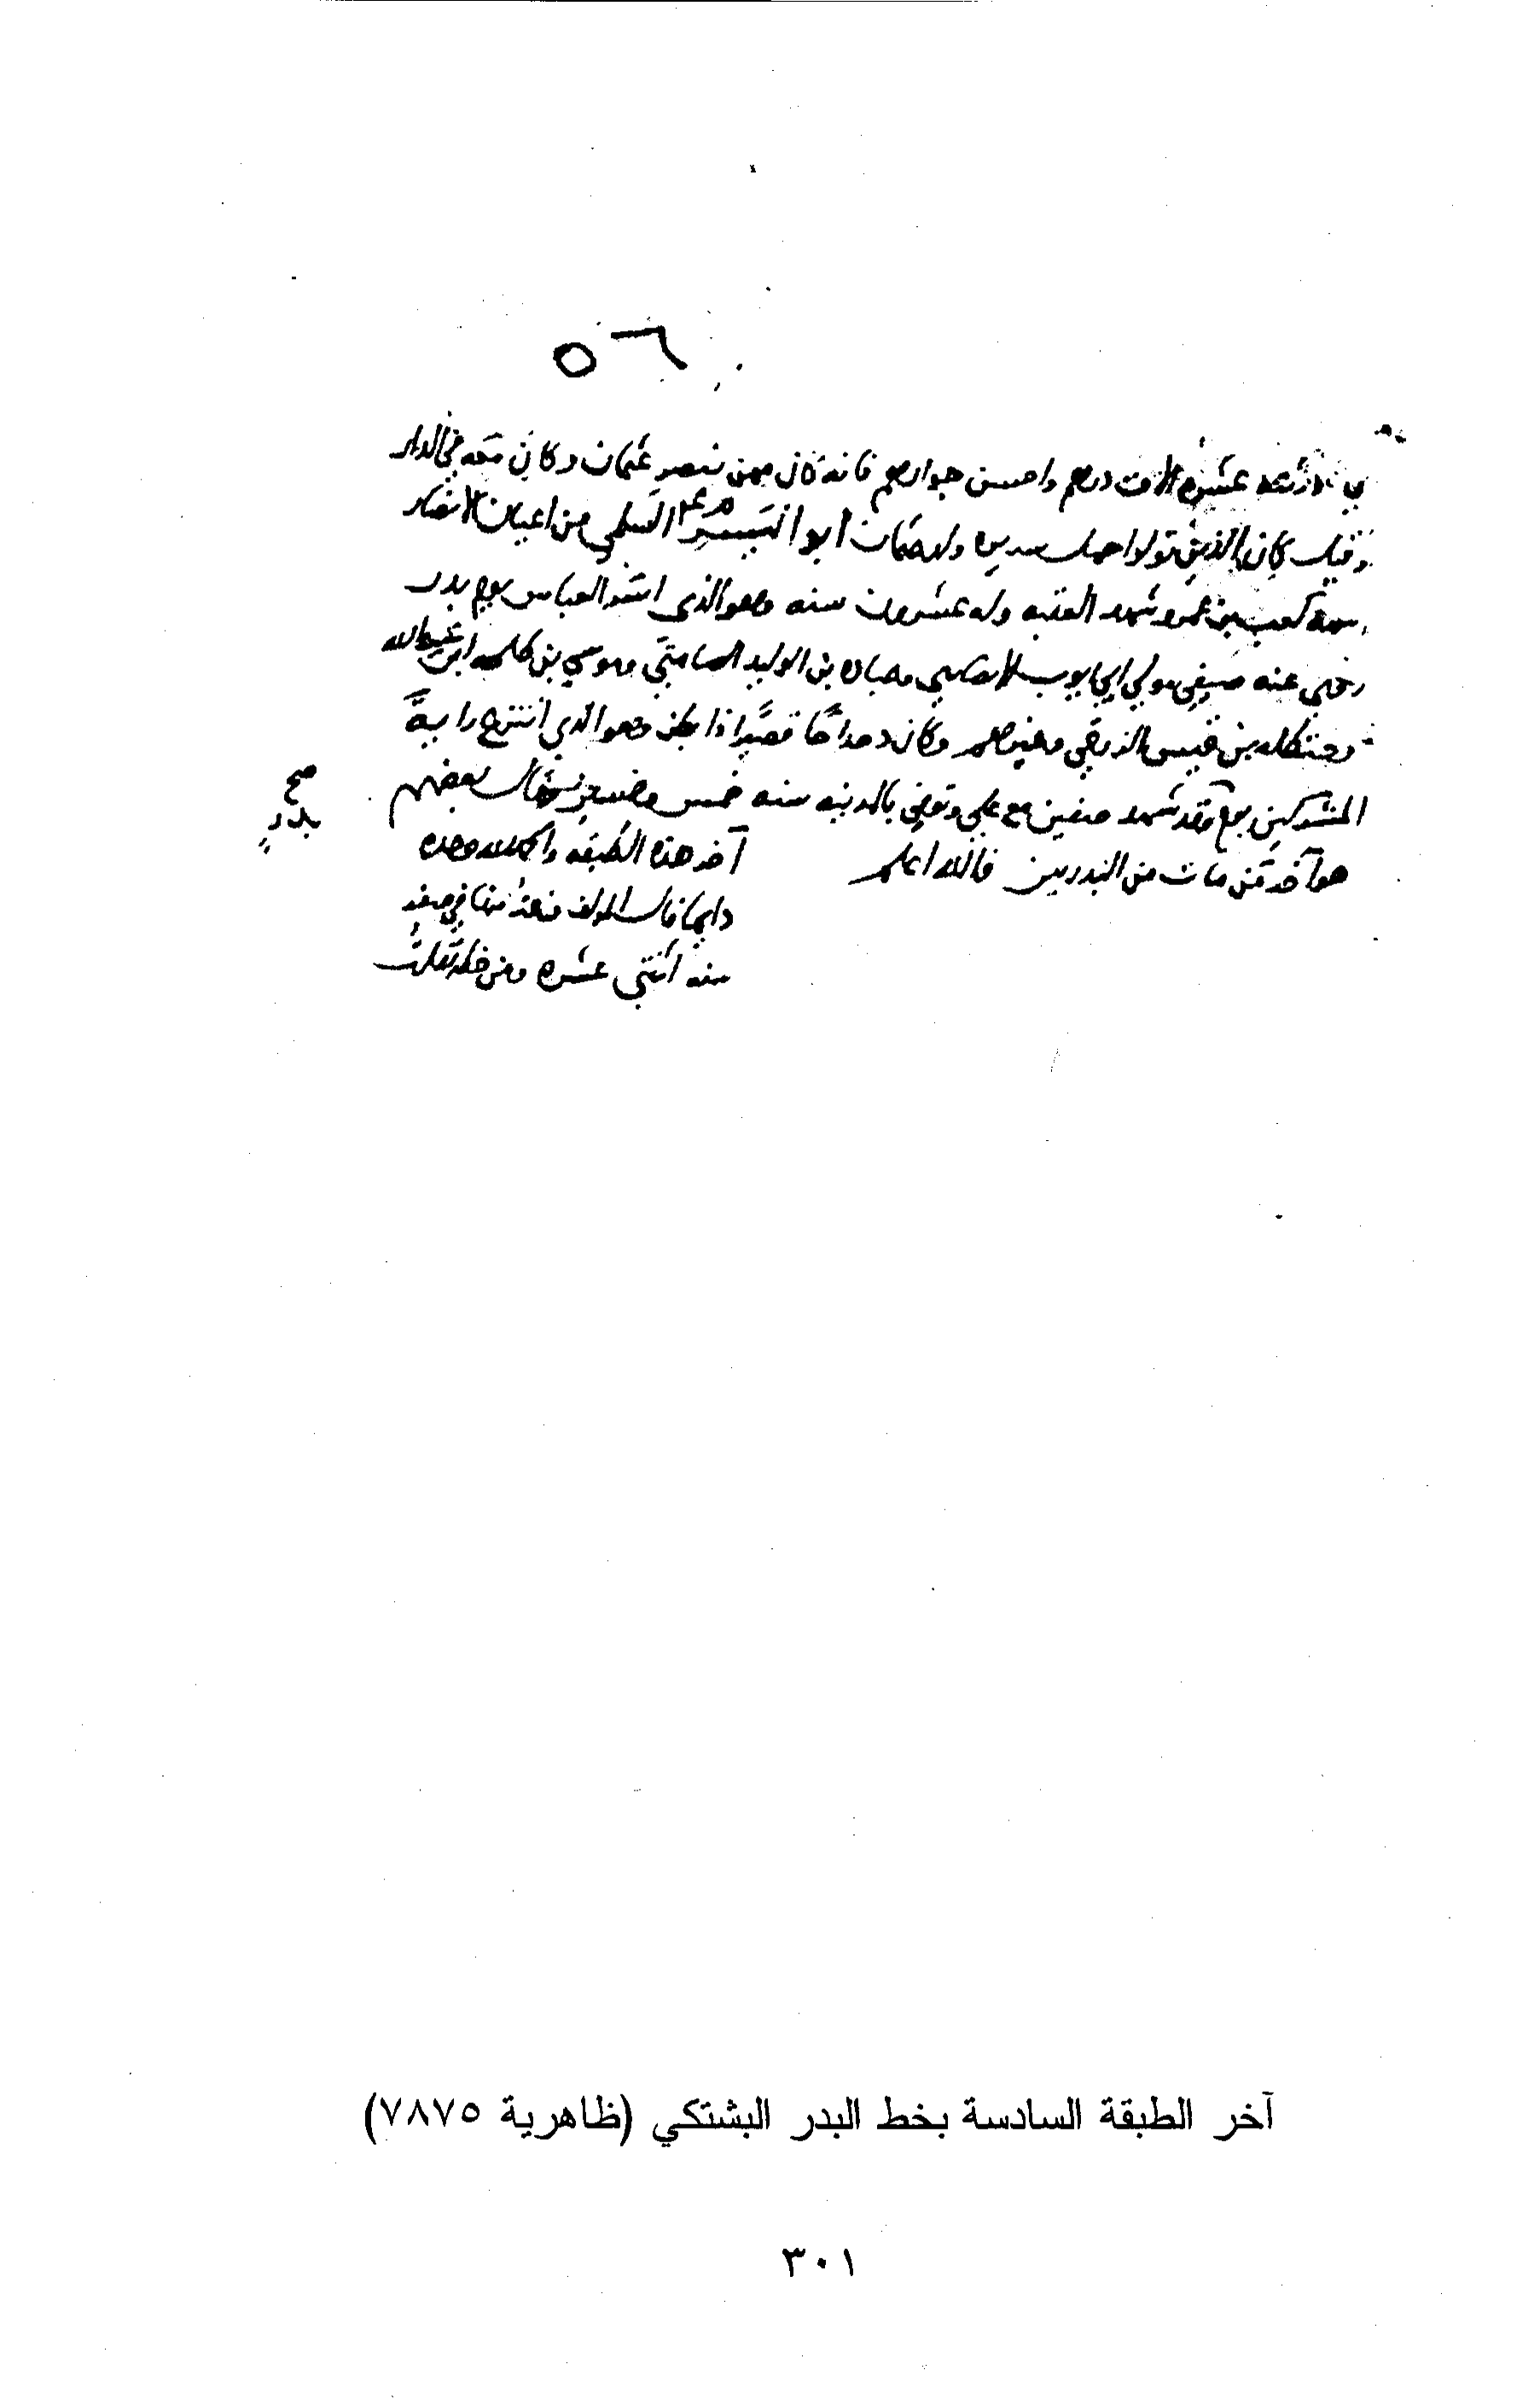 ٥٦
عشره الاف درهم واحسن جوارهم فانه كان ممن نصر عثمان وكان معه في الدار
وقيل كان الذين تولوا ابو اليسر م ع السلمي من اعيان الانصار
اسمه كعب بن عمرو شهد العقبه وله عشرون سنه وهو الذي اسر العباس يوم بدر
روي عنه صيفي مولي ابي ايوب الانصاري وعباده بن الوليد الصامتي وموسي بن طلحه ابن عبيدالله
وحنظله بن قيس الزرقي وغيرهم وكان دحداحًا قصيرًا ذا بطن وهو الذي انتزع رايةَ
المشركين يوم وقد شهد صفين مع علي وتوفي بالمدينه سنه خمس وخمسين وقال بعضهم
صح
بدر
هو آخر من مات من البدريين فالله اعلم
آخر هذه الطبقه والحمدلله وحده
دايما قال المولف فرغت منها في صفر
سنه اثنتي عشره ومن خطه نقلت
آخر الطبقة السادسة بخط البدر البشتكي (ظاهرية ٧٨٧٥)
٣٠١